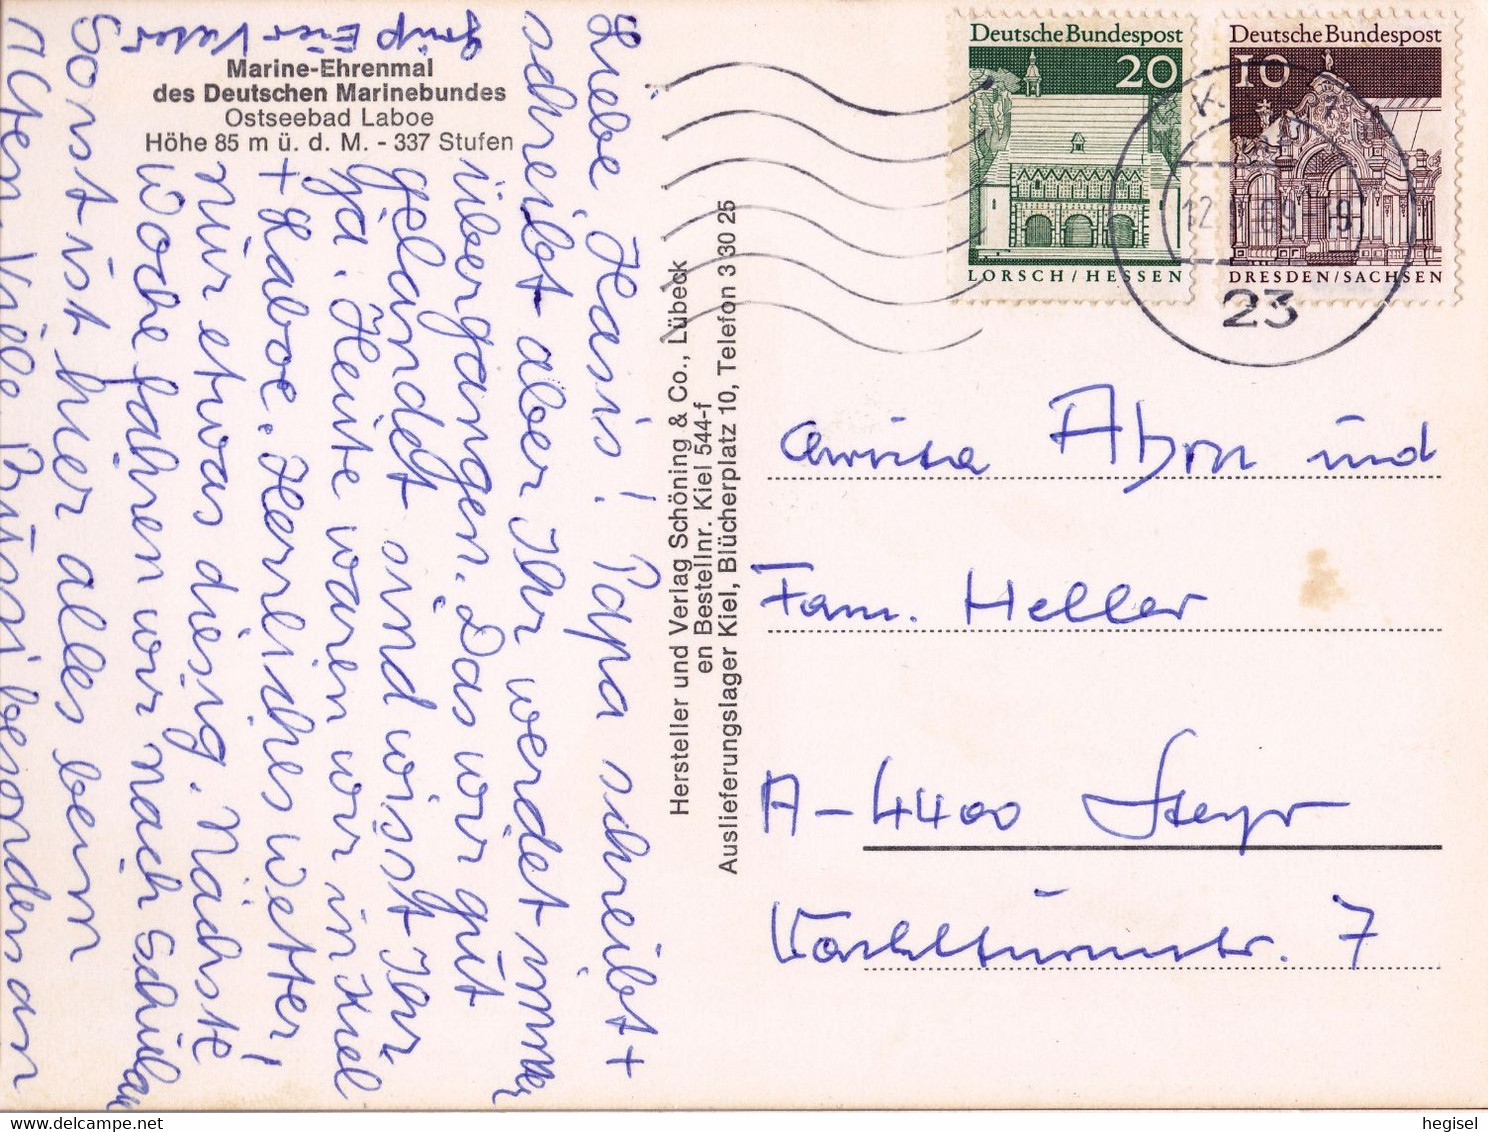 Marine-Ehrenmal
des Deutschen Marinebundes
Ostseebad Laboe
Höhe 85 m ü. d. M. - 337 Stufen
Liebe Hasis! Papa schreibt +
schreibt aber Ihr werdet immer
übergangen. Das wir gut
gelandet sind wisst Ihr
ja. Heute waren wir in Kiel
+ Laboe. Herrliches Wetter,
nur etwas diesig. Nächste
Woche fahren wir nach
Sonst ist hier alles beim
Alten. Viele Bussi besonders an
Euer Vater
Hersteller und Verlag Schöning & Co., Lübeck
en Bestellnr. Kiel 544-f
Auslieferungslager Kiel, Blücherplatz 10, Telefon 3 30 25
Deutsche Bundespost
20
LORSCH/HESSEN
Deutsche Bundespost
10
DRESDEN/SACHSEN
23
und
Fam. Heller
A-4400 Steyr
7
hegisel